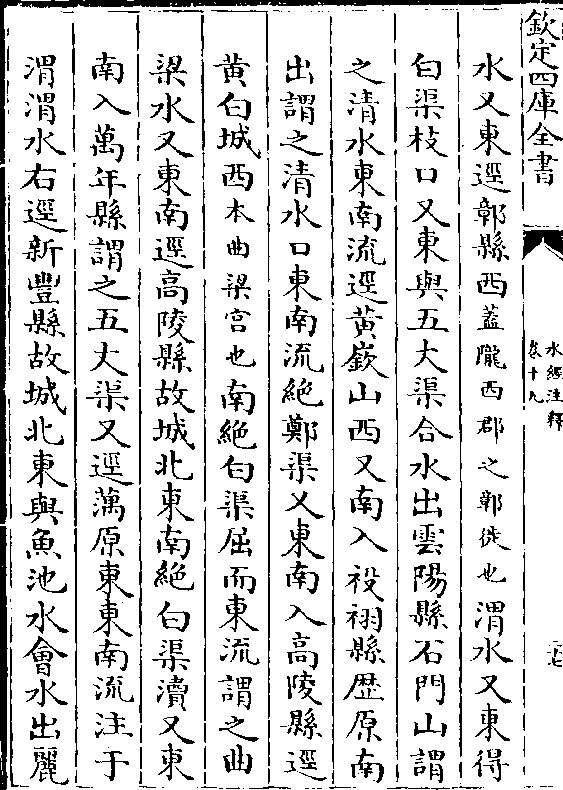 欽定四庫全書
水經注釋
卷十九
水又東逕鄣縣西蓋隴西郡之鄣徙也渭水又東得
白渠枝口又東與五丈渠合水出雲陽縣石門山謂
之清水東南流逕黃嶔山西又南入祋祤縣歴原南
出謂之清水口東南流絶鄭渠又東南入高陵縣逕
黃白城西本曲梁宫也南絶白渠屈而東流謂之曲
梁水又東南逕高陵縣故城北東南絶白渠瀆又東
南入萬年縣謂之五丈渠又逕藕原東東南流注于
渭渭水右逕新豐縣故城北東與魚池水會水出麗